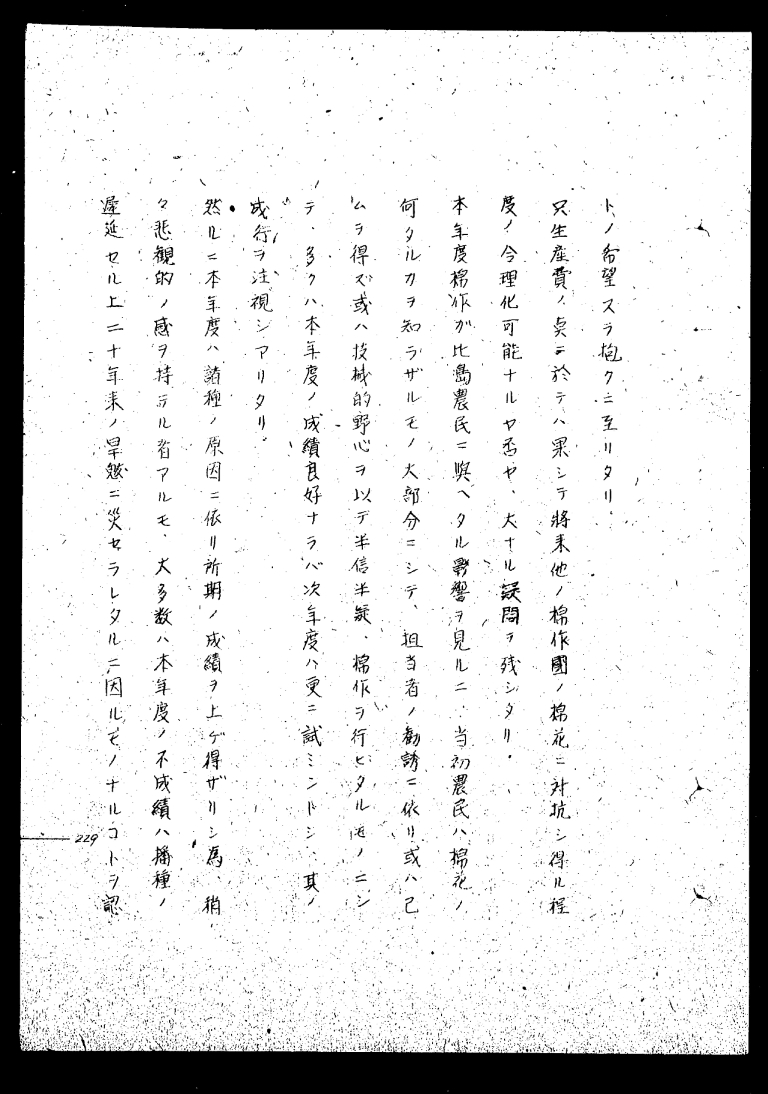 トノ希望スラ抱クニ至リタリ、
只生産費ノ点ニ於テハ果シテ將来他ノ棉作國ノ棉花ニ対抗シ得ル程
度ノ合理化可能ナルヤ否ヤ、大ナル疑問ヲ残シタリ。
本年度棉作ガ比島農民ニ與ヘタル影響ヲ見ルニ、当初農民ハ棉花ノ
何タルカヲ知ラザルモノ大部分ニシテ、担当者ノ勧誘ニ依リ或ハ己
ムヲ得ズ或ハ技械的野心ヲ以テ半信半疑、棉作ヲ行ヒタルモノニシ
テ、多クハ本年度ノ成績良好ナラバ次年度ハ更ニ試ミンドシ、其ノ
成行ヲ注視シアリタリ。
然ルニ本年度ハ諸種ノ原因ニ依リ所期ノ成績ヲ上ゲ得ザリシ為、稍
々悲観的ノ感ヲ持テル者アルモ、大多数ハ本年度ノ不成績ハ播種ノ
遅延セル上ニ十年来ノ旱魃ニ災セラレタルニ因ルモノナルコトヲ認
229